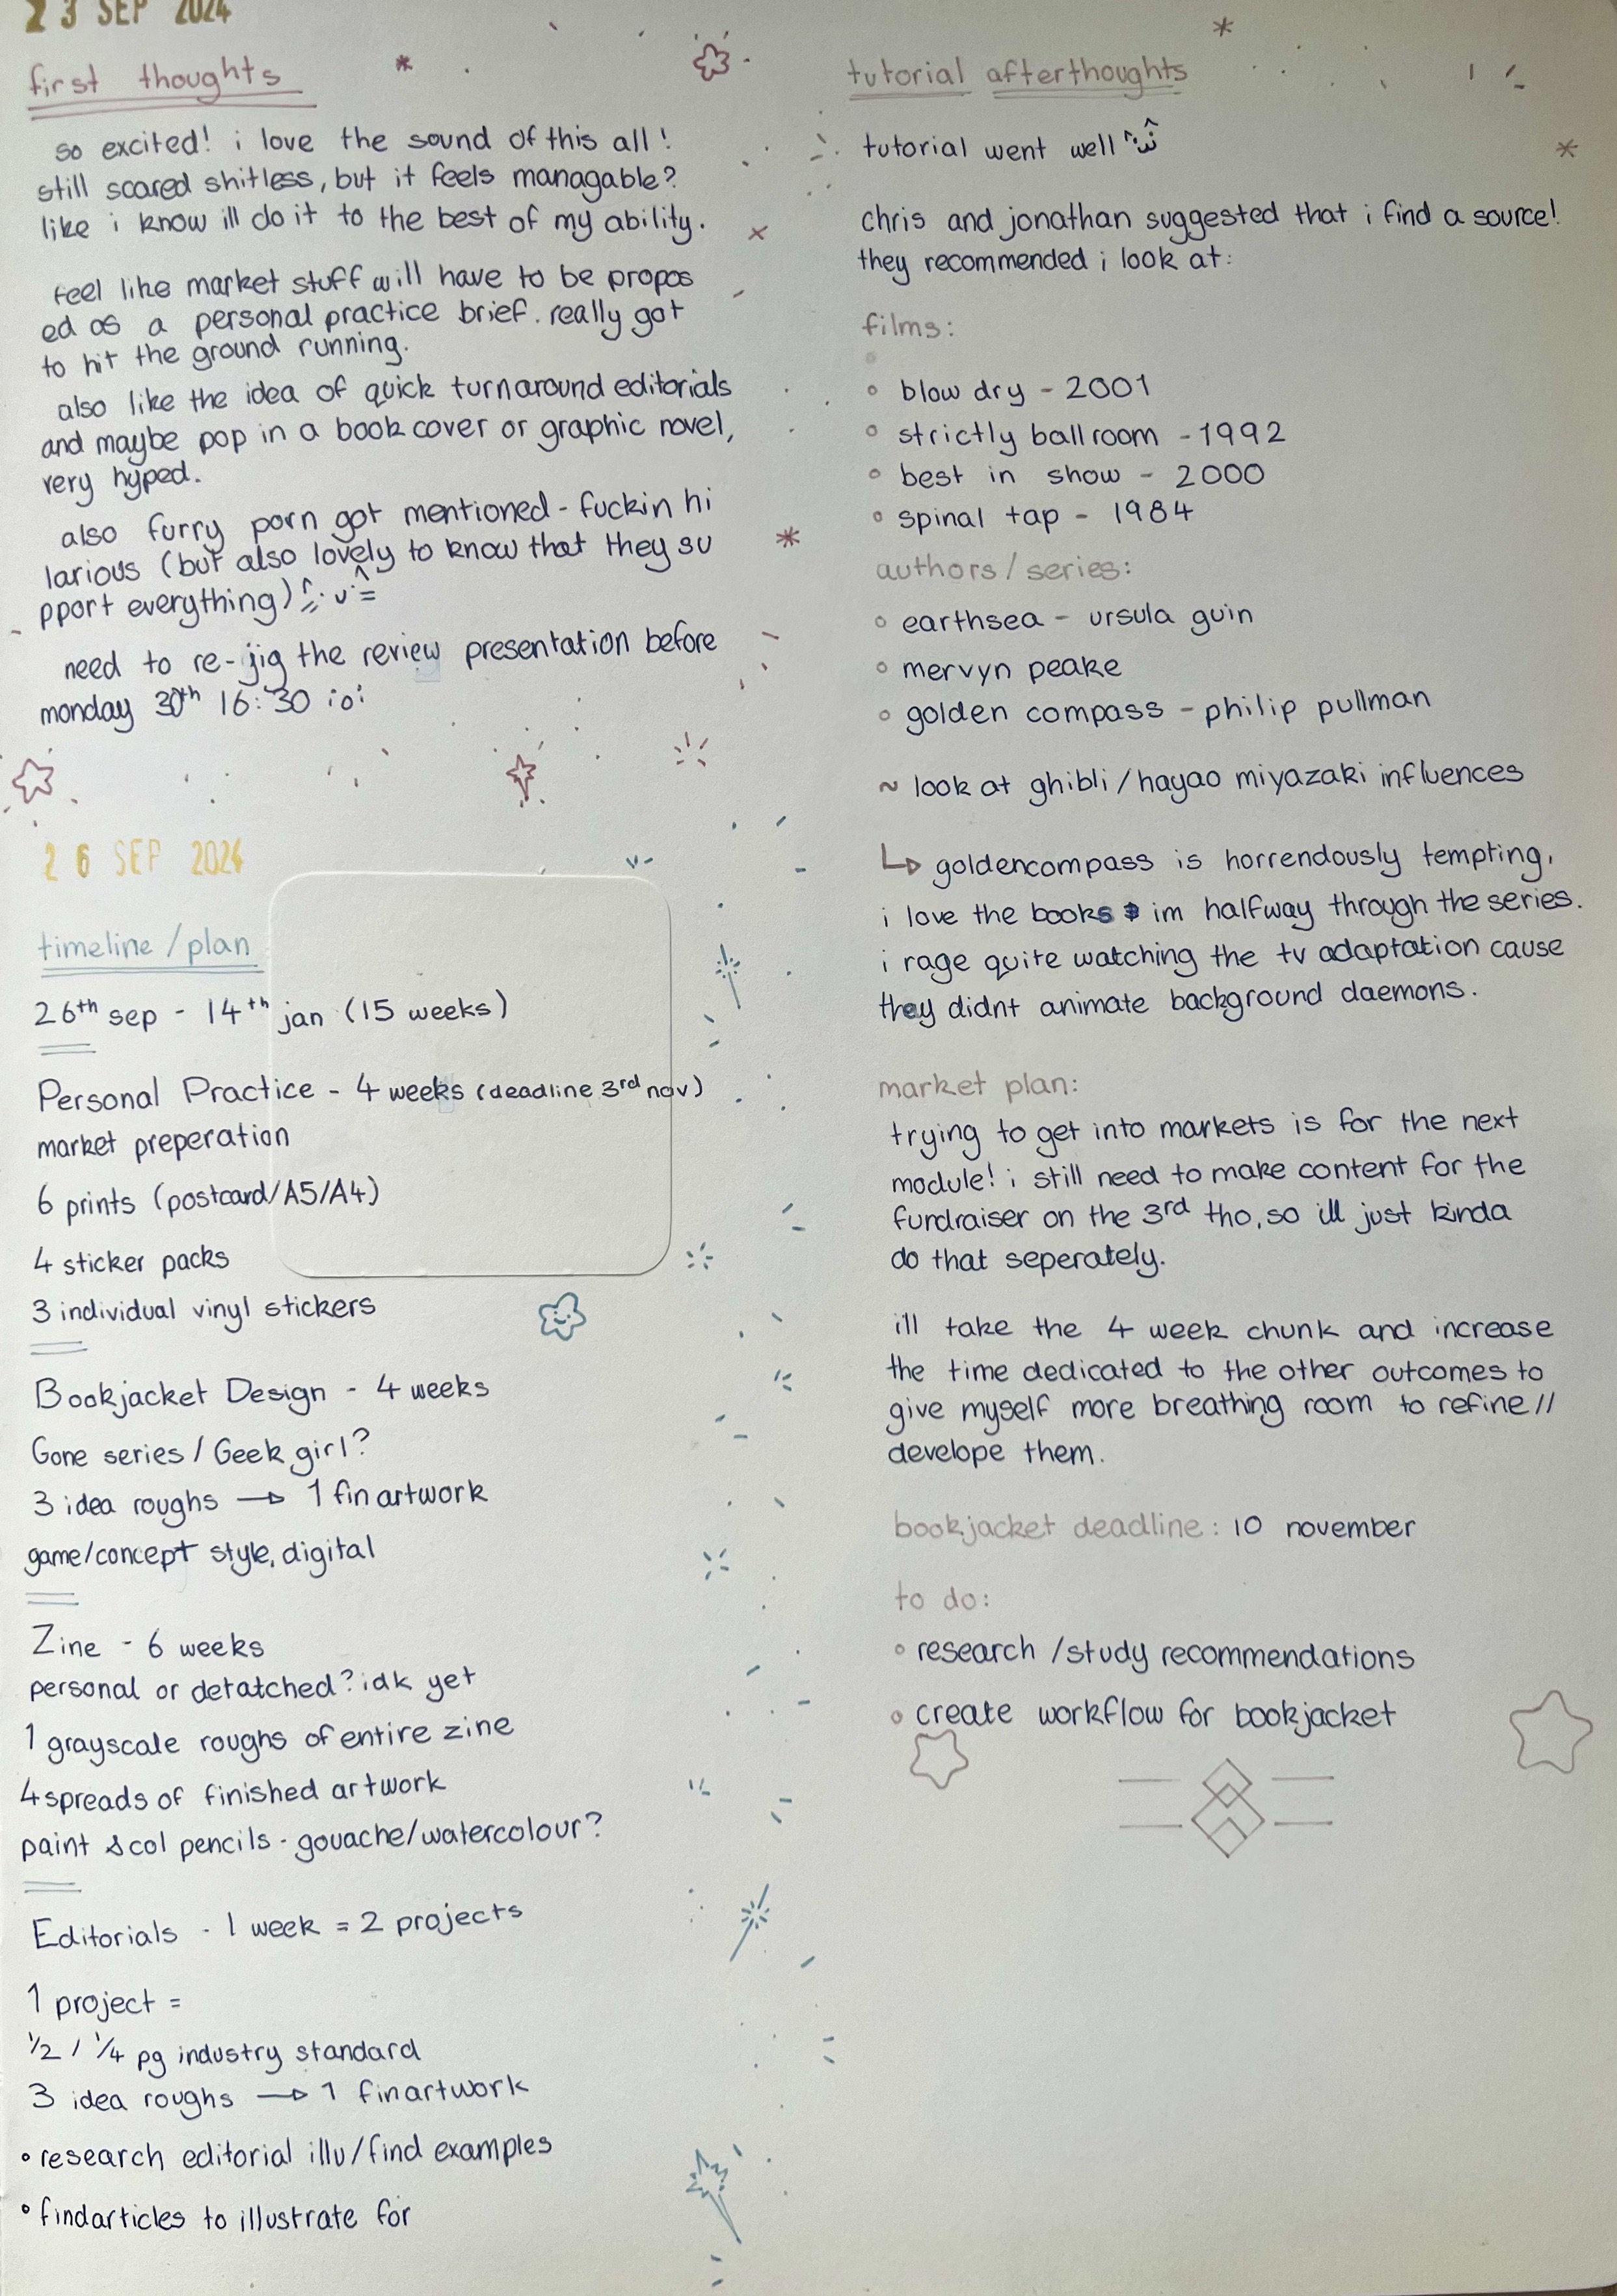 23 SEP 2024
first thoughts
so excited! i love the sound of this all!
still scared shitless, but it feels managable?
like i know ill do it to the best of my ability.
feel like market stuff will have to be propos
ed as a personal practice brief. really got
to hit the ground running.
also like the idea of quick turnaround editorials
and maybe pop in a book cover or graphic novel,
very hyped.
also furry porn got mentioned - fuckin hi
larious (but also lovely to know that they su
pport everything)
need to re-jig the review presentation before
monday 30th 16:30 :o:
26 SEP 2024
timeline/plan
26th sep - 14th jan (15 weeks)
Personal Practice - 4 weeks (deadline 3rd nov)
market preperation
6 prints (postcard/A5/A4)
4 sticker packs
3 individual vinyl stickers
Bookjacket Design - 4 weeks
Gone series/Geek girl?
3 idea roughs → 1 fin artwork
game/concept style, digital
Zine - 6 weeks
personal or detatched? idk yet
1 grayscale roughs of entire zine
4 spreads of finished artwork
paint & col pencils - gouache/watercolour?
Editorials - 1 week = 2 projects
1 project =
1/2 / 1/4 pg industry standard
3 idea roughs → 1 fin artwork
• research editorial illu/find examples
• find articles to illustrate for
tutorial afterthoughts
tutorial went well
chris and jonathan suggested that i find a source!
they recommended i look at:
films:
• blow dry - 2001
• strictly ballroom - 1992
• best in show - 2000
• spinal tap - 1984
authors/series:
• earthsea - ursula guin
• mervyn peake
• golden compass - philip pullman
~ look at ghibli/hayao miyazaki influences
↳ goldencompass is horrendously tempting,
i love the books im halfway through the series.
i rage quite watching the tv adaptation cause
they didnt animate background daemons.
market plan:
trying to get into markets is for the next
module! i still need to make content for the
fundraiser on the 3rd tho, so ill just kinda
do that seperately.
ill take the 4 week chunk and increase
the time dedicated to the other outcomes to
give myself more breathing room to refine//
develope them.
bookjacket deadline: 10 november
to do:
• research /study recommendations
• create workflow for bookjacket